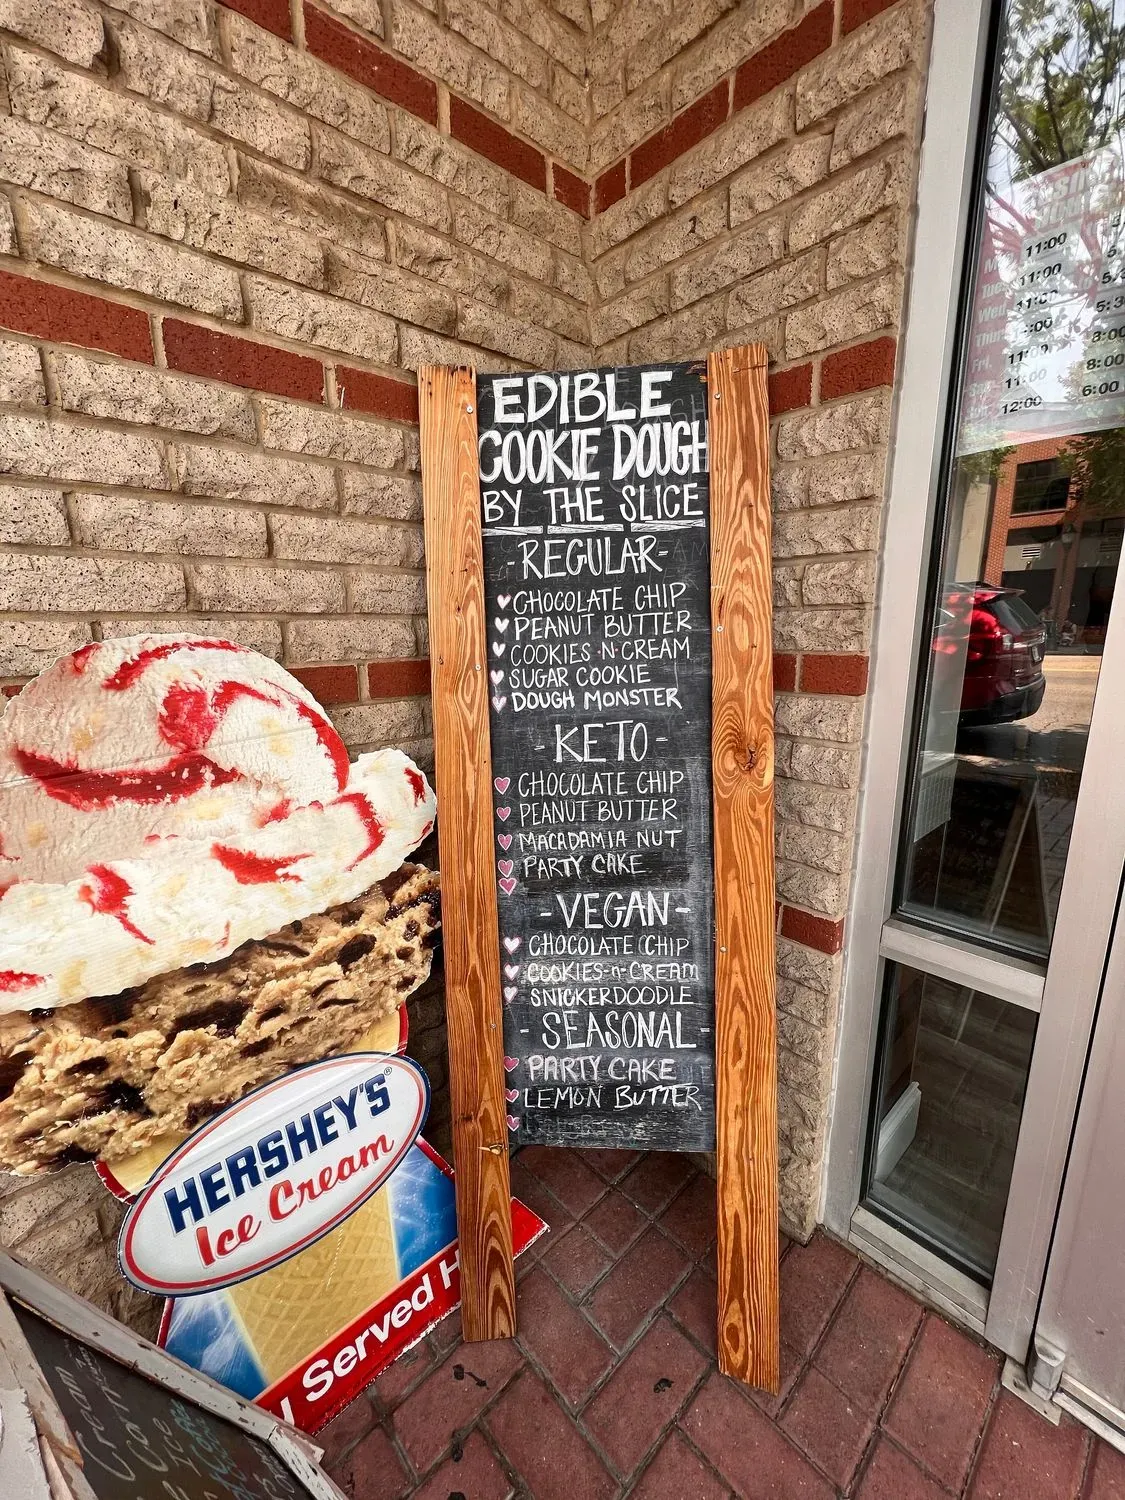 EDIBLE
COOKIE DOUGH
BY THE SLICE
-REGULAR-
CHOCOLATE CHIP
PEANUT BUTTER
COOKIES N CREAM
SUGAR COOKIE
DOUGH MONSTER
-KETO-
CHOCOLATE CHIP
PEANUT BUTTER
MACADAMIA NUT
PARTY CAKE
-VEGAN-
CHOCOLATE CHIP
COOKIES-n-CREAM
SNICKERDOODLE
-SEASONAL-
PARTY CAKE
LEMON BUTTER
HERSHEY'S®
Ice Cream
Served H
11:00
Tues 11:00
Wed 11:00 5:3
Thur :00 5:3
Fri 11:00 8:00
11:00 8:00
12:00 6:00
Cream